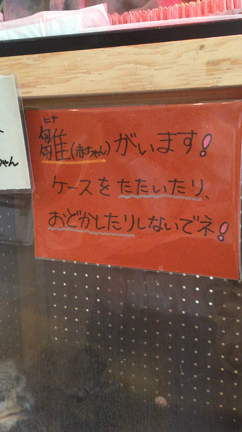 ヒナ
雛(赤ちゃん)がいます!
ケースをたたいたり、
おどかしたりしないでネ!
ちゃん